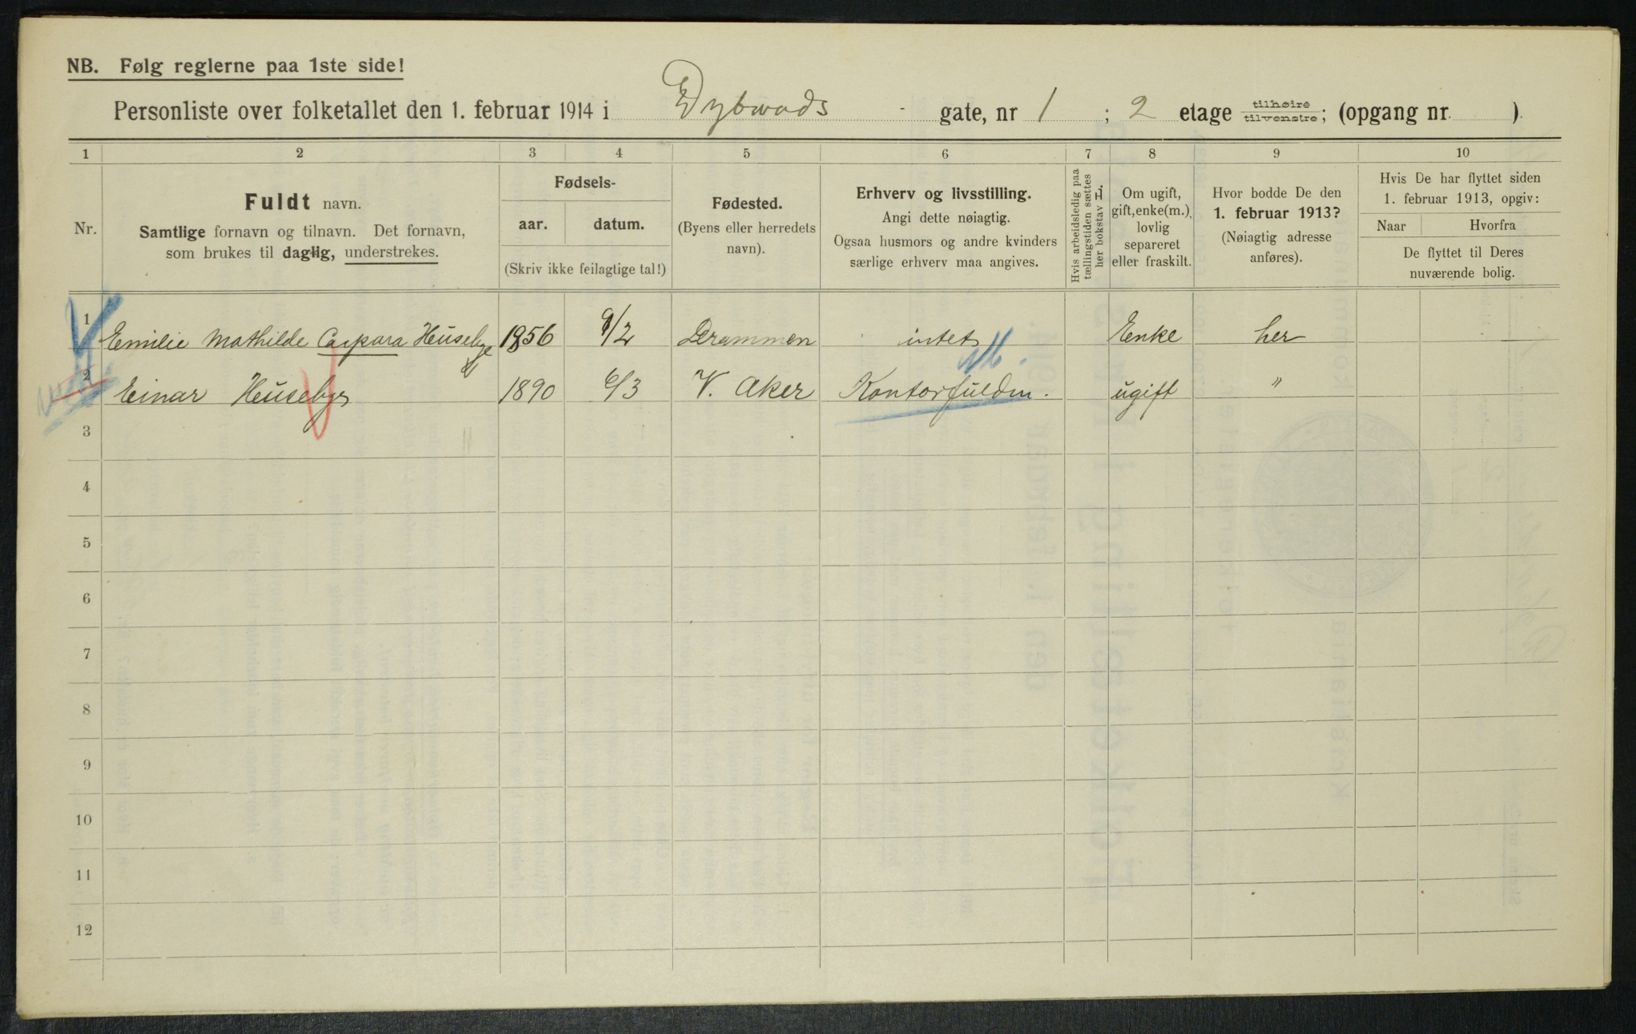 NB. Følg reglerne paa 1ste side!
Personliste over folketallet den 1. februar 1914 i Dybwads gate, nr 1; 2 etage tilhøire tilvenstre; (opgang nr. ).
1 2 3 4 5 6 7 8 9 10
Nr.
Fuldt navn.
Samtlige fornavn og tilnavn. Det fornavn,
som brukes til daglig, understrekes.
Fødsels-
aar. datum.
(Skriv ikke feilagtige tal!)
Fødested.
(Byens eller herredets
navn).
Erhverv og livsstilling.
Angi dette nøiagtig.
Ogsaa husmors og andre kvinders
særlige erhverv maa angives.
Hvis arbeidsledig paa
tællingstiden sættes
her bokstav L.
Om ugift,
gift, enke(m.),
lovlig
separeret
eller fraskilt.
Hvor bodde De den
1. februar 1913?
(Nøiagtig adresse
anføres).
Hvis De har flyttet siden
1. februar 1913, opgiv:
Naar Hvorfra
De flyttet til Deres
nuværende bolig.
1 Emilie Mathilde Caspara Heusebye 1856 9/2 Drammen intet Enke her
2 Einar Heusebye 1890 6/3 V. Aker Kontorfuldm. ugift "
3
4
5
6
7
8
9
10
11
12